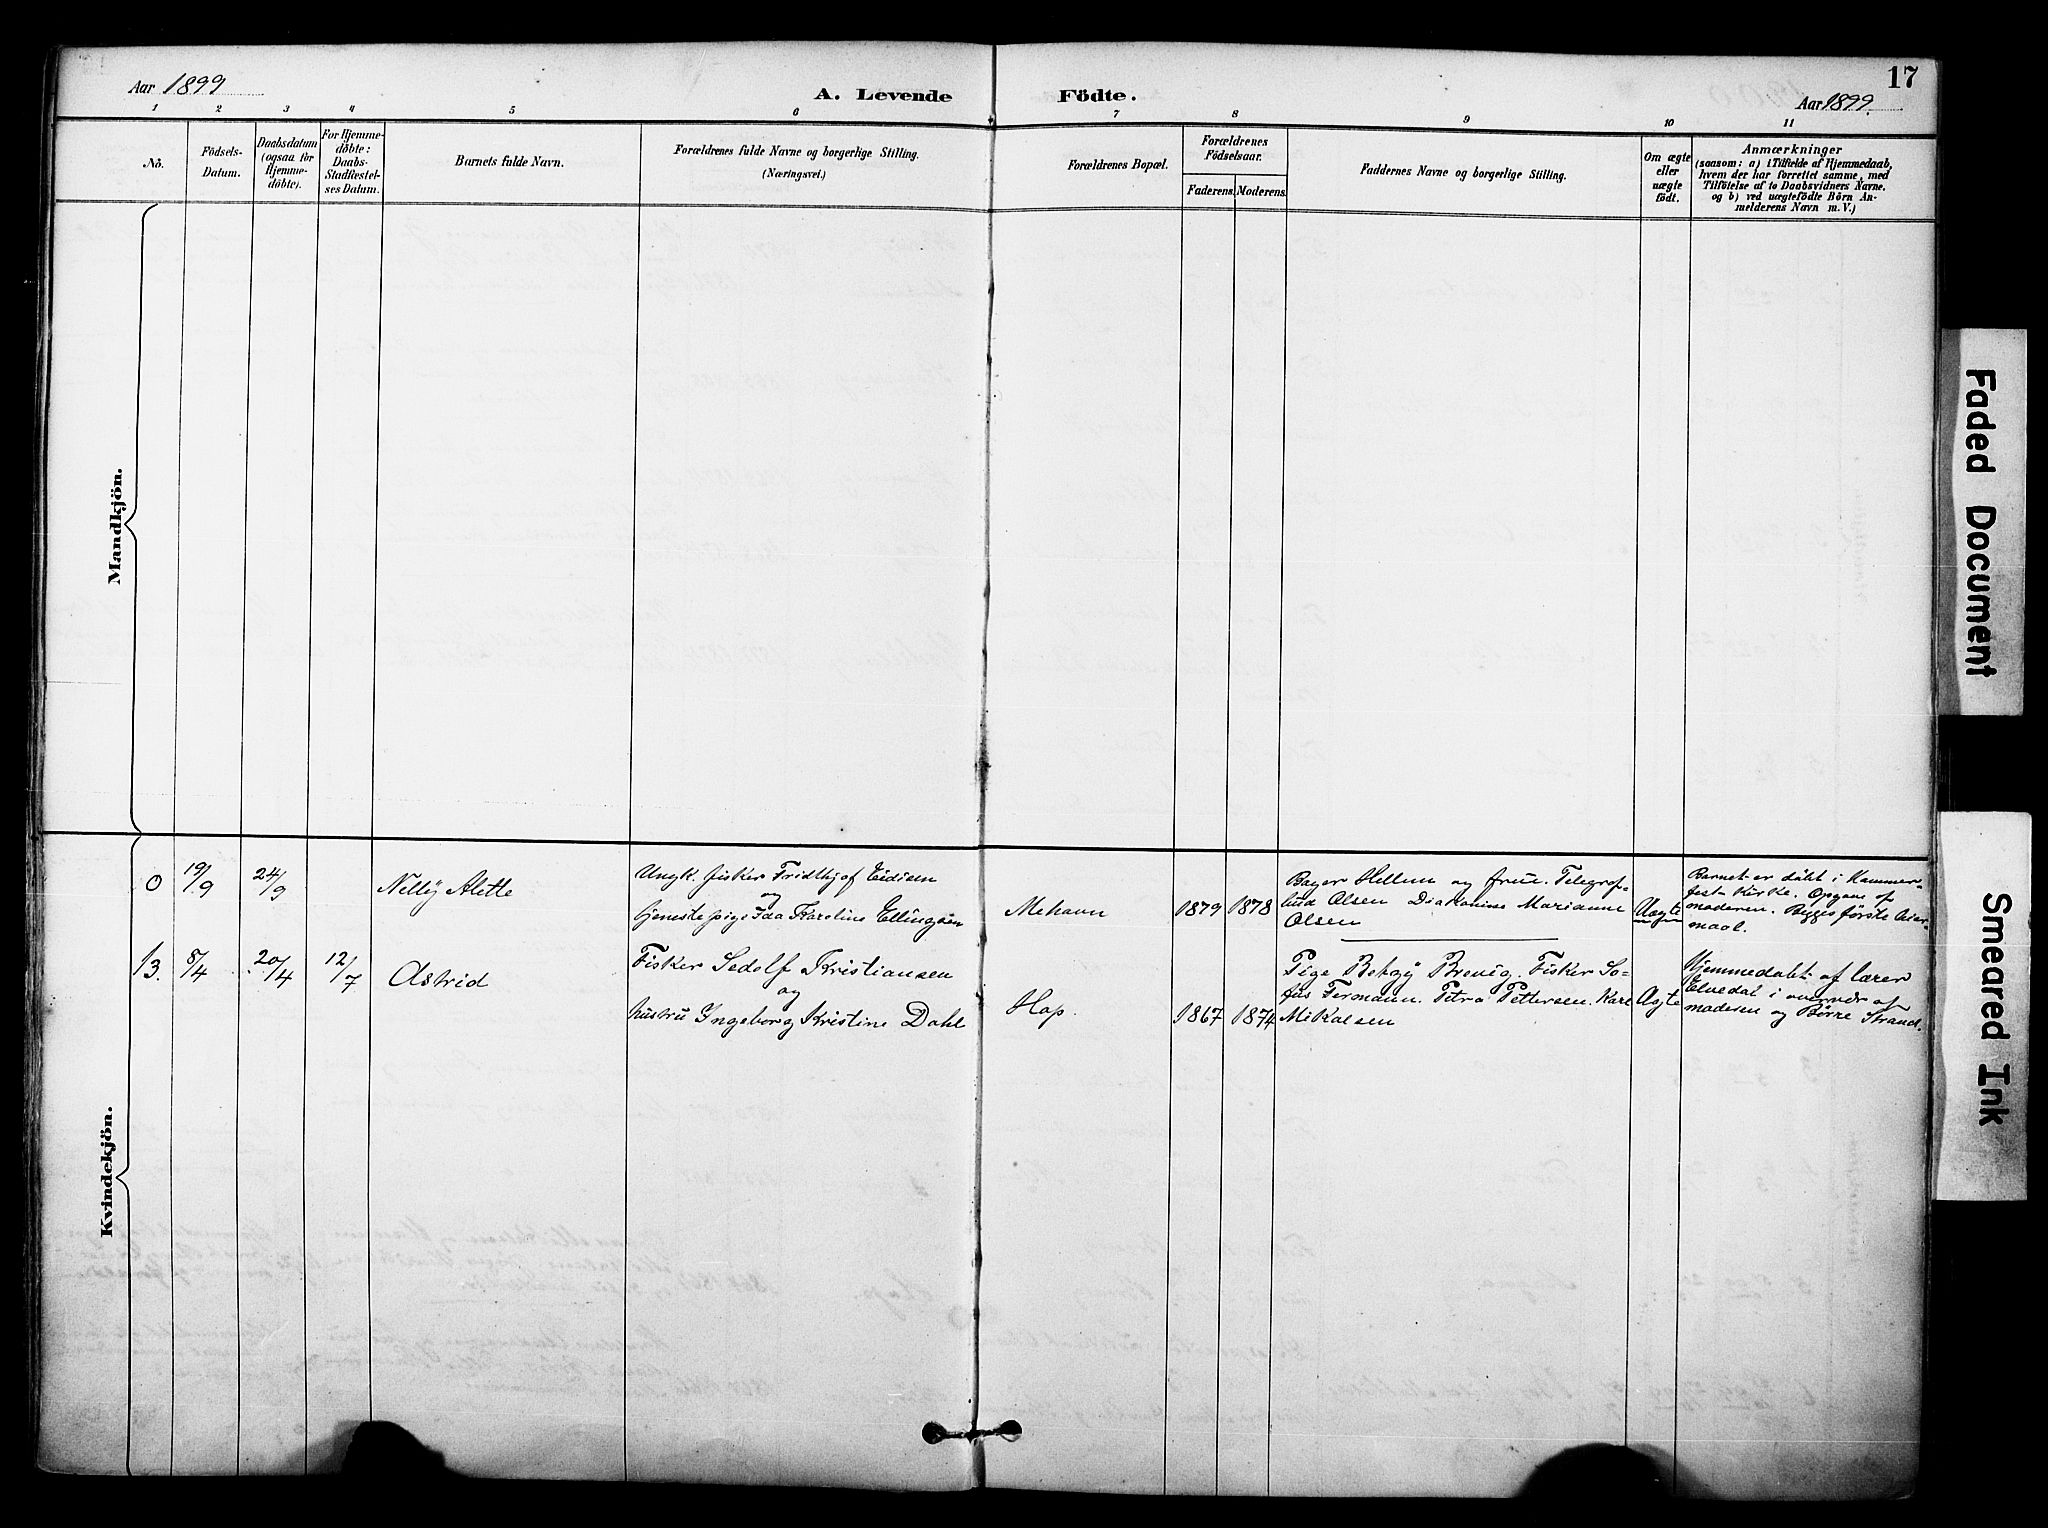 17
Aar 1899
A. Levende Födte.
Aar 1899.
1 2 3 4 5 6 7 8 9 10 11
No.
Födsels-
Datum.
Daabsdatum
(ogsaa for
Hjemme-
döbte).
For Hjemme-
döbte:
Daabs-
Stadfæstel-
ses Datum.
Barnets fulde Navn.
Forældrenes fulde Navne og borgerlige Stilling.
(Næringsvei.)
Forældrenes Bopæl.
Forældrenes
Födselsaar.
Faderens. Moderens.
Faddernes Navne og borgerlige Stilling.
Om ægte
eller
uægte
födt.
Anmærkninger
(saasom: a) i Tilfælde af Hjemmedaab,
hvem der har forrettet samme, med
Tilföielse af to Daabsvidners Navne,
og b) ved uægtefödte Börn An-
melderens Navn m. V.)
Mandkjön.
Kvindekjön.
0
19/9
24/9
Nelly Alette
Ungk. fisker Fridthjof Eidism
og
tjenestepige Ida Karoline Ellingsen
Mehavn
1879
1878
Bager Hellum og frue. Telegraf-
bud Olsen Diakanine Marianne
Olsen
Uægte
Barnet er døbt i Hammer-
fest Kirke. Opgave af
moderen. Begges første leier-
maal.
13.
8/4
20/4
12/7
Astrid
Fisker Sedolf Kristiansen
og
hustru Ingeborg Kristine Dahl
Hop.
1867
1874
Pige Betzy Brevig. Fisker So-
fus Fermann. Petra Pettersen. Karl
Mikalsen
Ægte
Hjemmedøbt af lærer
Elvedal i overvær af
moderen og Børre Strand.
Faded Document
Smeared Ink